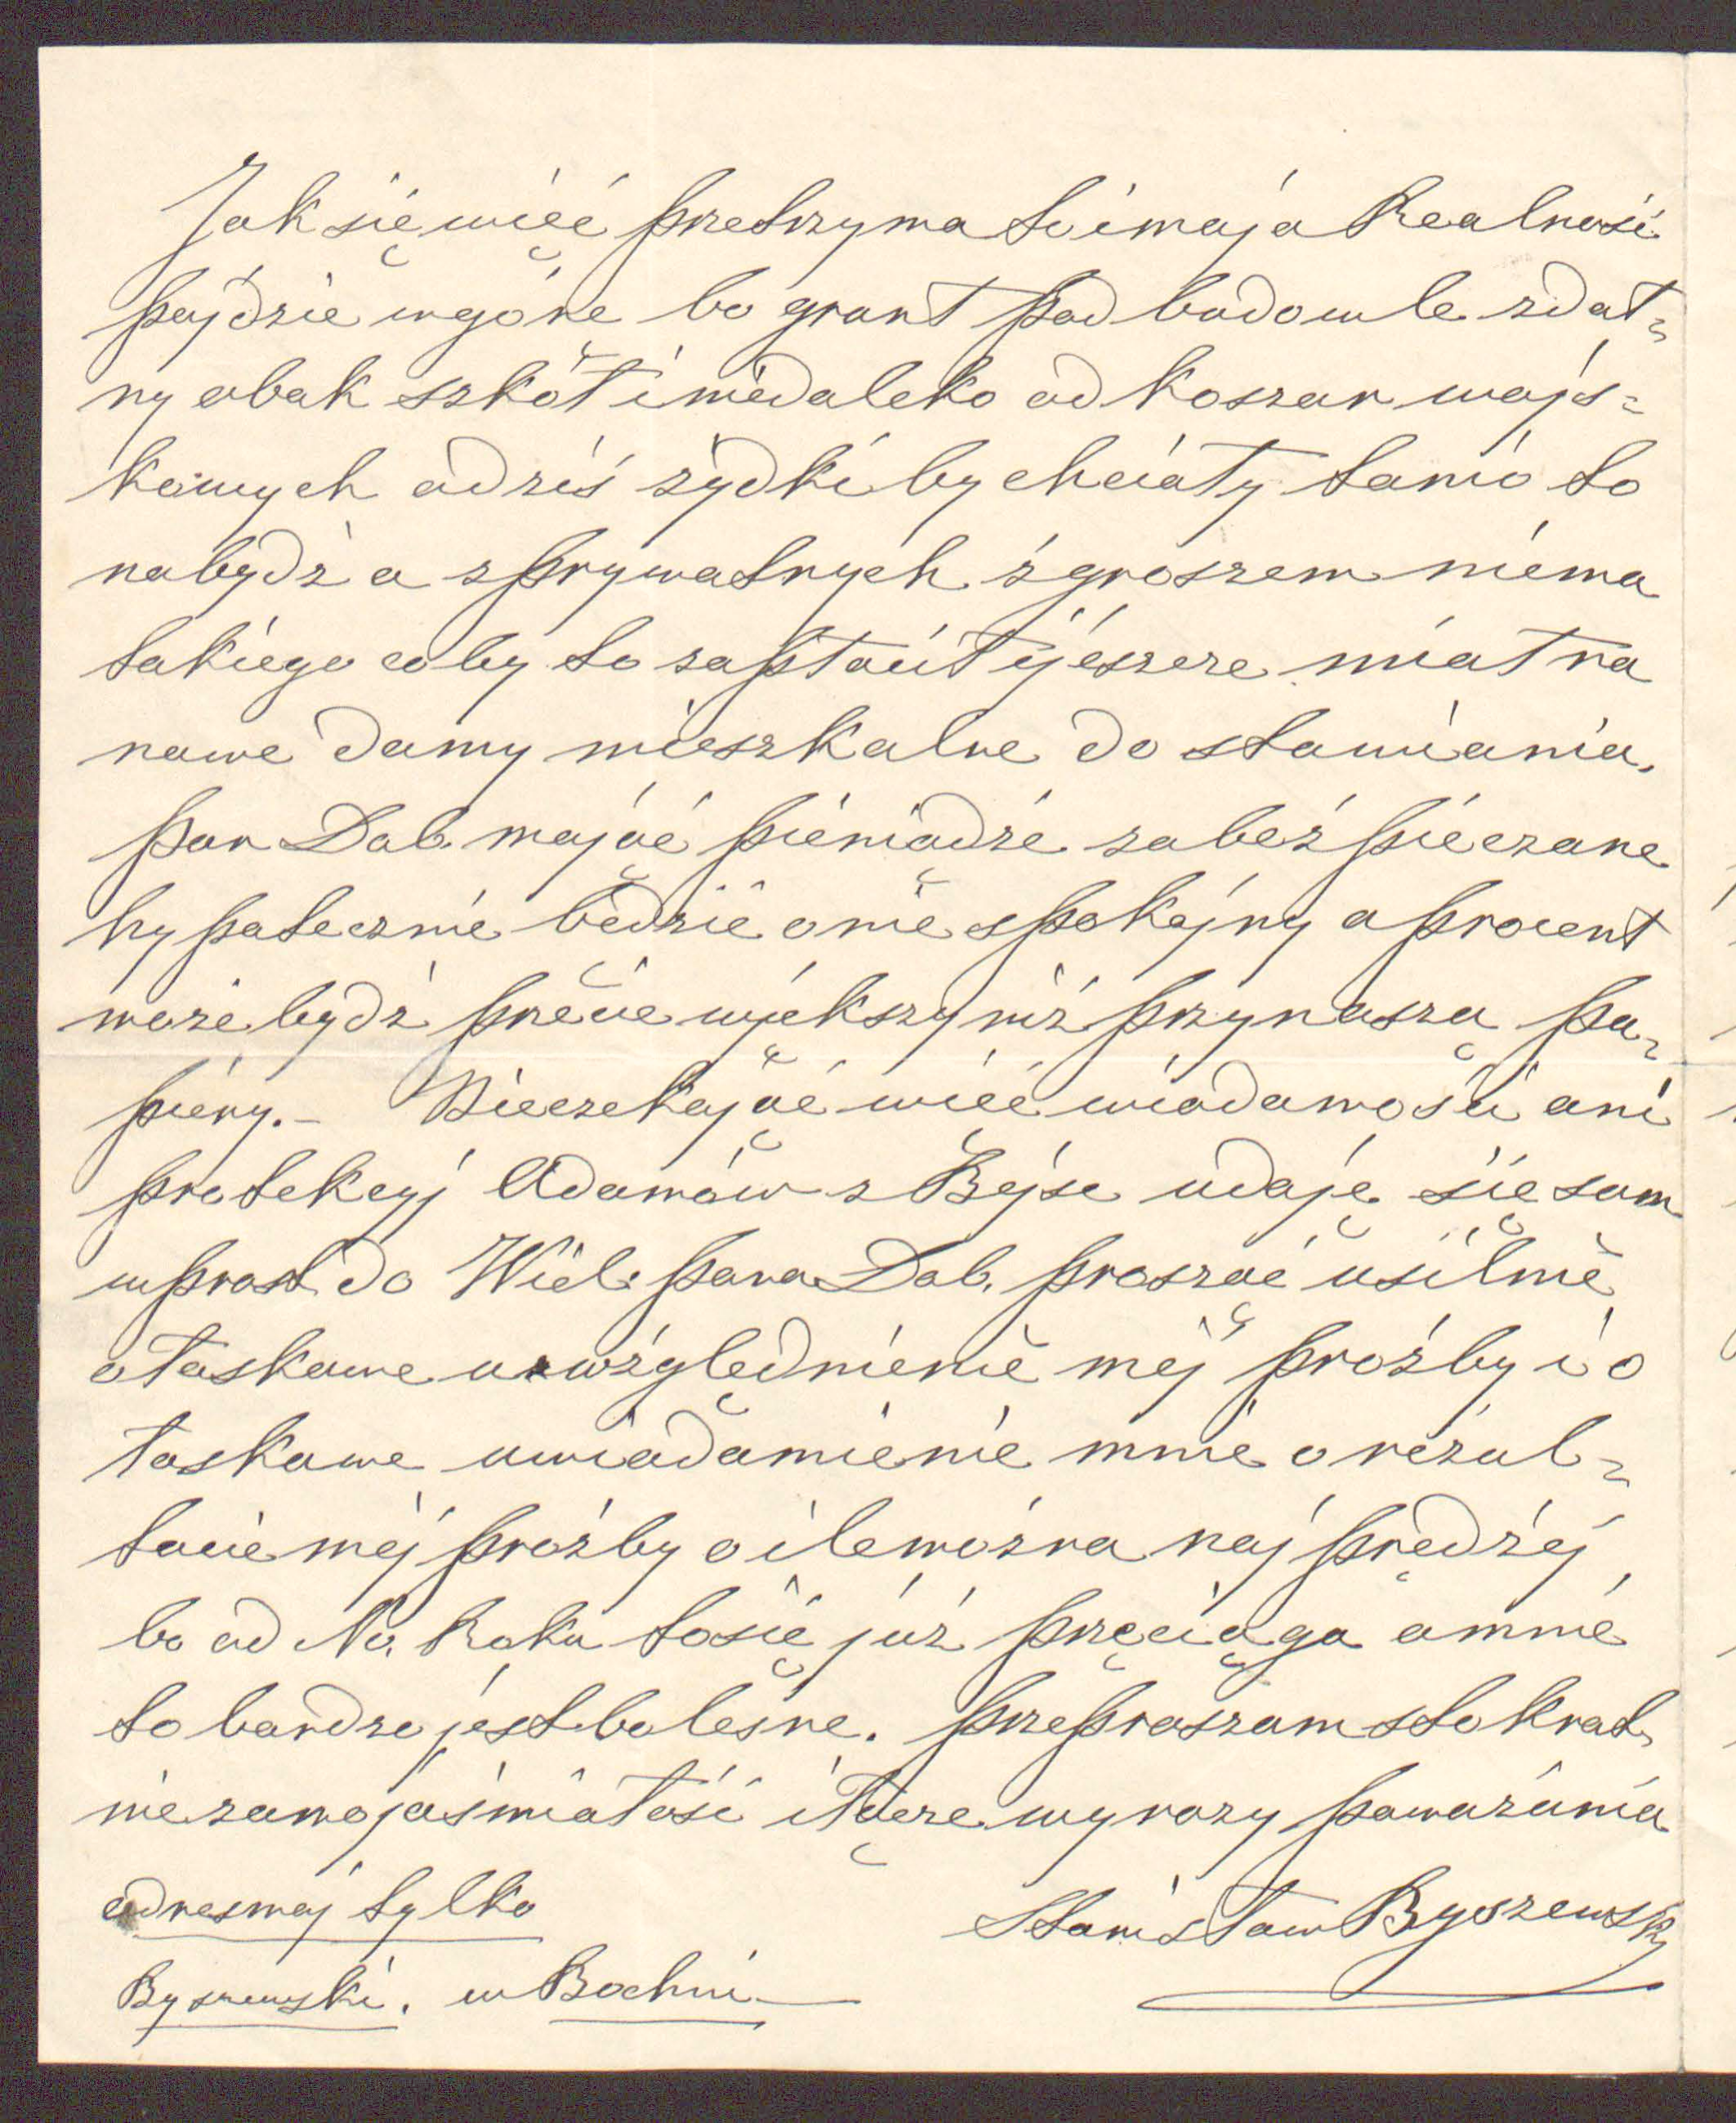 Jak się więc przetrzyma to i moja Realność
pójdzie w górę bo grunt pod budowle zdat=
ny obok szkół i niedaleko od koszar wojs=
kowych a dziś żydki by chciały tanio to
nabydź a z prywatnych z groszem niema
takiego coby to zapłacił i jeszcze miał na
nowe domy mieszkalne do stawiania.
Pan Dob. mając pieniądze zabezpieczone
hypotecznie będzie o nie spokojny a procent
może bydź przecie większy niż przynoszą pa=
piery. – Nieczekając więc wiadomości ani
protekcyj Adamów z Bejsc udaję się sam
wprost do Wiel. Pana Dob. prosząc usilnie
o łaskawe uwzględnienie mej prośby i o
łaskawe uwiadomienie mnie o rezul=
tacie mej prośby o ile można najprędzej,
bo od No. Roku to się już przeciąga a mnie
to bardzo jest bolesne. Przepraszam stokrot
nie za moją śmiałość i łączę wyrazy poważania
adres mój tylko
Stanisław Byszewski
Byszewski. w Bochni